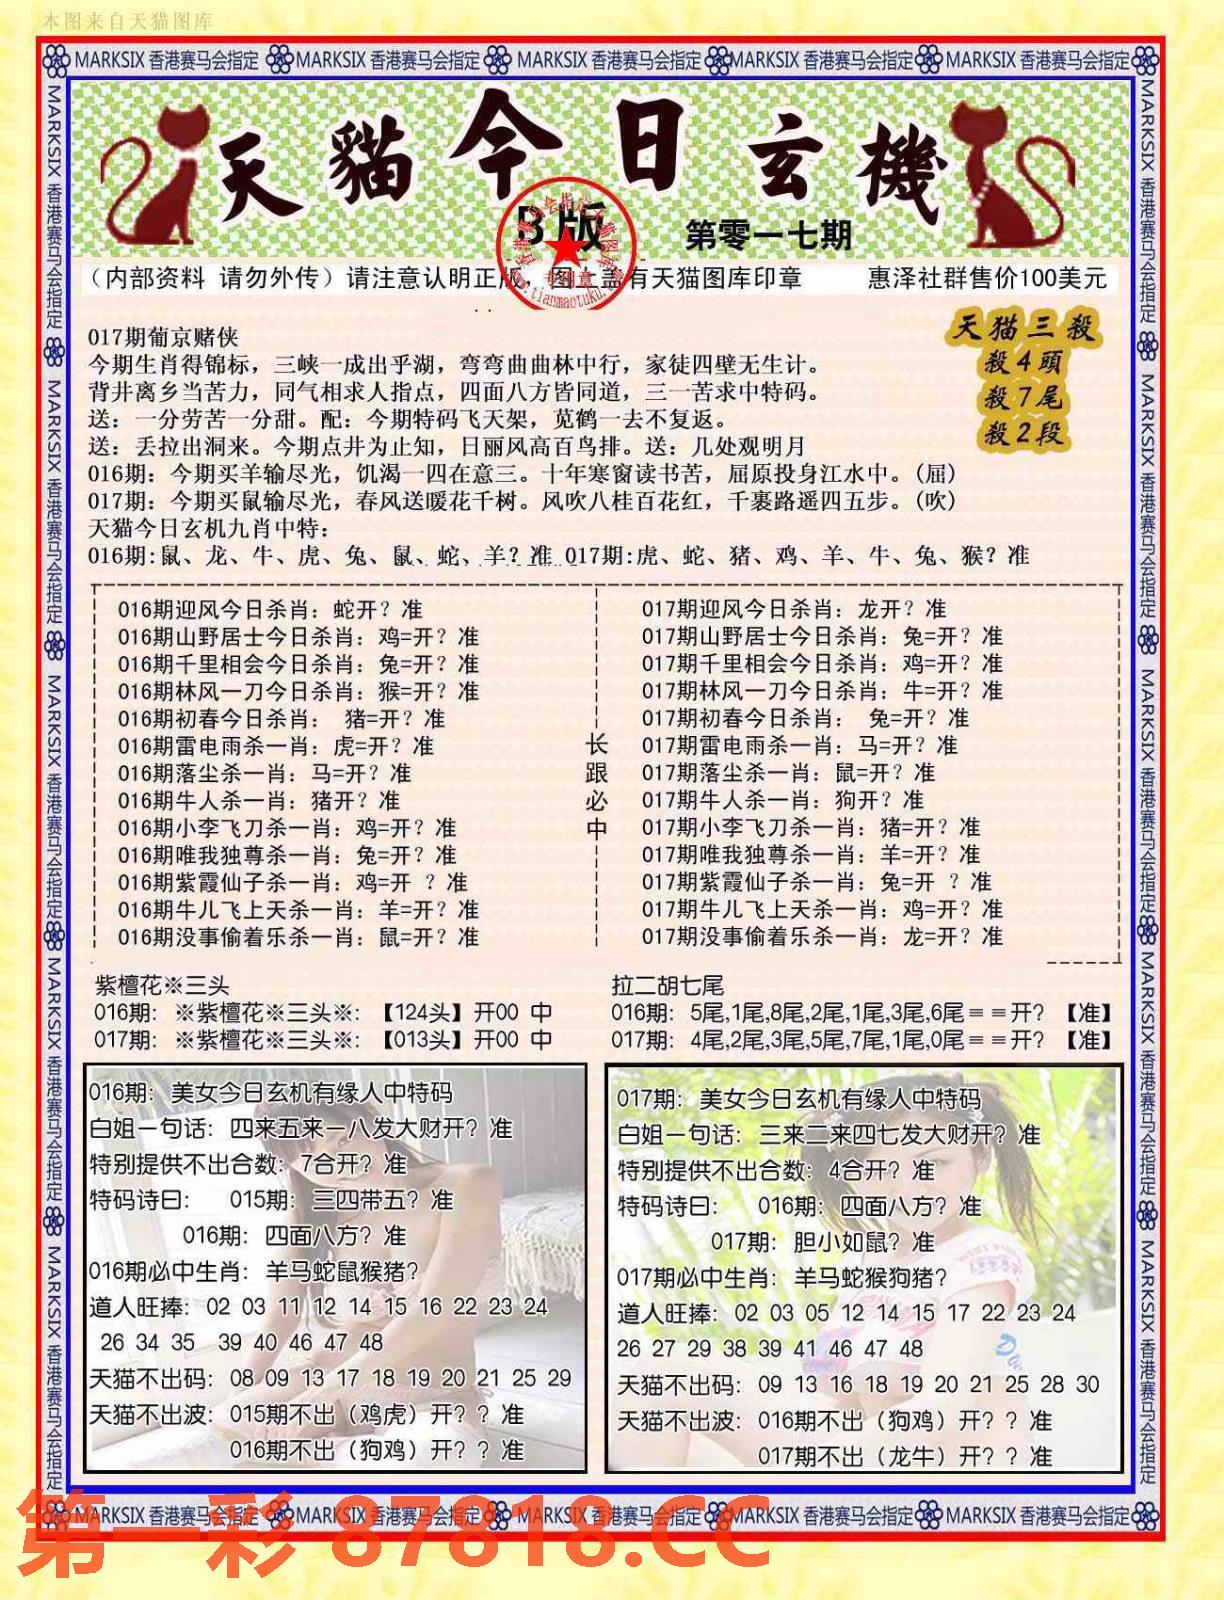 本图来自天猫图库
MARKSIX 香港赛马会指定 MARKSIX 香港赛马会指定 MARKSIX 香港赛马会指定 MARKSIX 香港赛马会指定 MARKSIX 香港赛马会指定
天貓今日玄機
B版
第零一七期
（内部资料 请勿外传）请注意认明正版，图上盖有天猫图库印章 惠泽社群售价100美元
天猫三殺
殺4頭
殺7尾
殺2段
017期葡京赌侠
今期生肖得锦标，三峡一成出乎湖，弯弯曲曲林中行，家徒四壁无生计。
背井离乡当苦力，同气相求人指点，四面八方皆同道，三一苦求中特码。
送：一分劳苦一分甜。配：今期特码飞天架，苋鹤一去不复返。
送：丢拉出洞来。今期点井为止知，日丽风高百鸟排。送：几处观明月
016期：今期买羊输尽光，饥渴一四在意三。十年寒窗读书苦，屈原投身江水中。(屈)
017期：今期买鼠输尽光，春风送暖花千树。风吹八桂百花红，千裹路遥四五步。(吹)
天猫今日玄机九肖中特：
016期:鼠、龙、牛、虎、兔、鼠、蛇、羊？准 017期:虎、蛇、猪、鸡、羊、牛、兔、猴？准
016期迎风今日杀肖：蛇开？准
016期山野居士今日杀肖：鸡=开？准
016期千里相会今日杀肖：兔=开？准
016期林风一刀今日杀肖：猴=开？准
016期初春今日杀肖： 猪=开？准
016期雷电雨杀一肖：虎=开？准
016期落尘杀一肖：马=开？准
016期牛人杀一肖：猪开？准
016期小李飞刀杀一肖：鸡=开？准
016期唯我独尊杀一肖：兔=开？准
016期紫霞仙子杀一肖：鸡=开 ？准
016期牛儿飞上天杀一肖：羊=开？准
016期没事偷着乐杀一肖：鼠=开？准
长跟必中
017期迎风今日杀肖：龙开？准
017期山野居士今日杀肖：兔=开？准
017期千里相会今日杀肖：鸡=开？准
017期林风一刀今日杀肖：牛=开？准
017期初春今日杀肖： 兔=开？准
017期雷电雨杀一肖：马=开？准
017期落尘杀一肖：鼠=开？准
017期牛人杀一肖：狗开？准
017期小李飞刀杀一肖：猪=开？准
017期唯我独尊杀一肖：羊=开？准
017期紫霞仙子杀一肖：兔=开 ？准
017期牛儿飞上天杀一肖：鸡=开？准
017期没事偷着乐杀一肖：龙=开？准
紫檀花※三头
016期：※紫檀花※三头※：【124头】开00 中
017期：※紫檀花※三头※：【013头】开00 中
拉二胡七尾
016期：5尾,1尾,8尾,2尾,1尾,3尾,6尾＝＝开？【准】
017期：4尾,2尾,3尾,5尾,7尾,1尾,0尾＝＝开？【准】
016期：美女今日玄机有缘人中特码
白姐一句话：四来五来一八发大财开？准
特别提供不出合数：7合开？准
特码诗曰： 015期：三四带五？准
016期：四面八方？准
016期必中生肖：羊马蛇鼠猴猪？
道人旺捧：02 03 11 12 14 15 16 22 23 24
26 34 35 39 40 46 47 48
天猫不出码：08 09 13 17 18 19 20 21 25 29
天猫不出波：015期不出（鸡虎）开？？准
016期不出（狗鸡）开？？准
017期：美女今日玄机有缘人中特码
白姐一句话：三来二来四七发大财开？准
特别提供不出合数：4合开？准
特码诗曰： 016期：四面八方？准
017期：胆小如鼠？准
017期必中生肖：羊马蛇猴狗猪？
道人旺捧：02 03 05 12 14 15 17 22 23 24
26 27 29 38 39 41 46 47 48
天猫不出码：09 13 16 18 19 20 21 25 28 30
天猫不出波：016期不出（狗鸡）开？？准
017期不出（龙牛）开？？准
MARKSIX 香港赛马会指定 MARKSIX 香港赛马会指定 MARKSIX 香港赛马会指定 MARKSIX 香港赛马会指定 MARKSIX 香港赛马会指定
第一彩 87818.CC